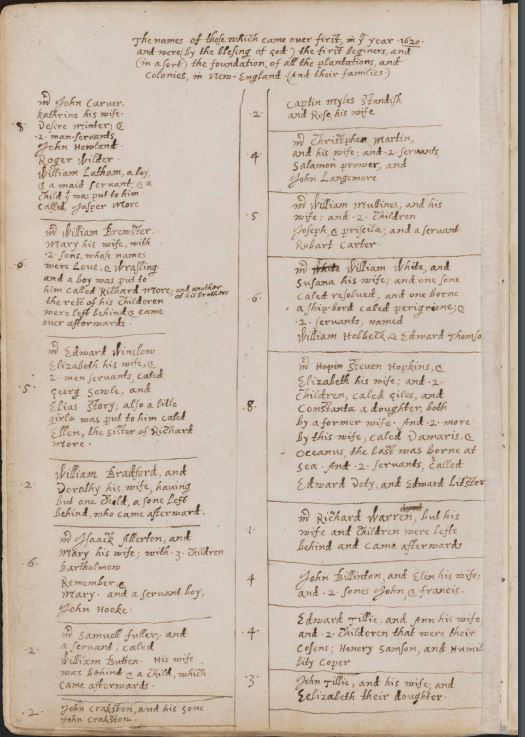 The names of those which came over first, in yͤ year .1620.
and were (by the blesing of god) the first beginers, and
(in a sort) the foundation, of all the plantations, and
Colonies, in New-England. (And their families)
.8.
mͬ John Carver.
kathrine his wife.
Desire Minter; &
.2. man-servants
John Howland
Roger Wilder.
William Latham, a boy,
& a maid servant, & a
child yͭ was put to him
called Jasper More
.6.
mͬ William Brewster.
Mary his wife, with
.2. sons, whose names
were Love, & Wrasling
and a boy was put to
him called Richard More; and another
of his brothers
the rest of his Childeren
were left behind & came
over afterwards.
.5.
mͬ Edward Winslow
Elizabeth his wife, &
.2. men servants, caled
Georg Sowle, and
Elias Story; also a litle
girle was put to him caled
Ellen, the sister of Richard
More.
2.
William Bradford, and
Dorathy his wife, having
but one Child, a sone left
behind, who came afterward.
6.
mͬ Isaack Allerton, and
Mary his wife; with .3. Children
Bartholmew
Remember, &
Mary. and a servant boy,
John Hooke.
2.
mͬ Samuell fuller; and
a servant, caled
William Butten. His wife
was behind & a Child, which
came afterwards.
.2.
John Crakston, and his sone
John Crakston.
.2.
Captin Myles Standish
and Rose, his wife
4.
mͬ Christpher Martin,
and his wife; and .2. servants,
Salamon prower, and
John Langemore
.5.
mͬ William Mullines, and his
wife; and .2. Children
Joseph, & priscila; and a servant
Robart Carter.
.6.
mͬ White William White, and
Susana his wife; and one sone
caled resolved, and one borne
a ship-bord caled perigriene; &
.2. servants, named
William Holbeck, & Edward Thomson
.8.
mͬ Hopin Steven Hopkins, &
Elizabeth his wife; and .2.
Children, caled Giles, and
Constanta a doughter, both
by a former wife. And .2. more
by this wife, caled Damaris, &
Oceanus, the last was borne at
sea. And .2. servants, called
Edward Doty, and Edward Litster
.1.
mͬ Richard Warren, but his
wife and Children were lefte
behind and came afterwards
4
John Billinton, and Elen his wife;
and .2. sones John, & francis.
.4.
Edward Tillie, and Ann his wife;
and .2. Childeren that were their
cosens; Henery Samson, and Humil
lity Coper
.3.
John Tillie, and his wife; and
Eelizabeth their doughter.